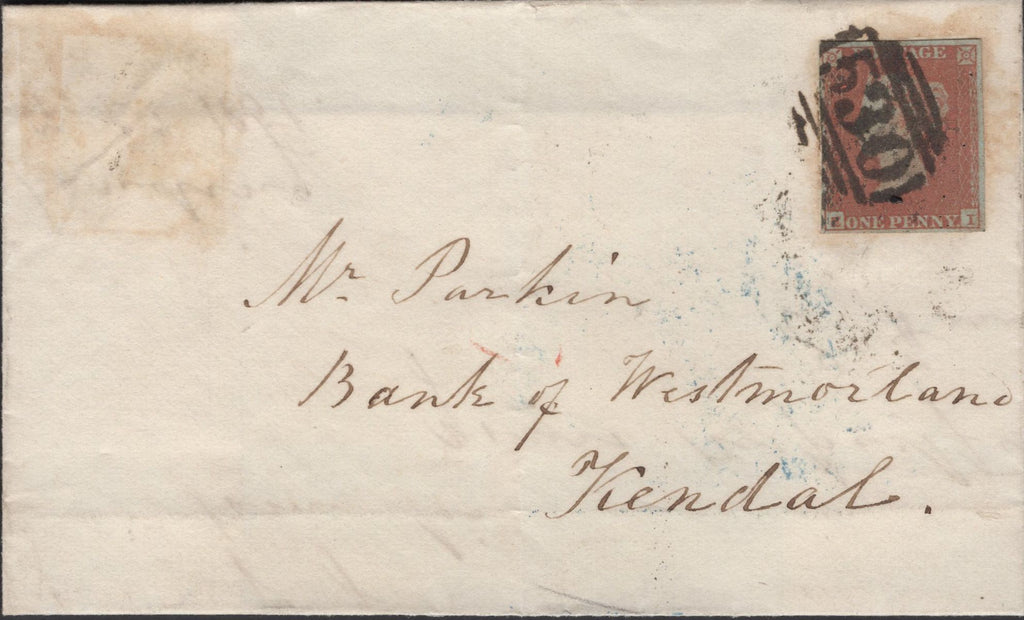 530
GE
ONE PENNY
Mr. Parkin
Bank of Westmorland
Kendal.